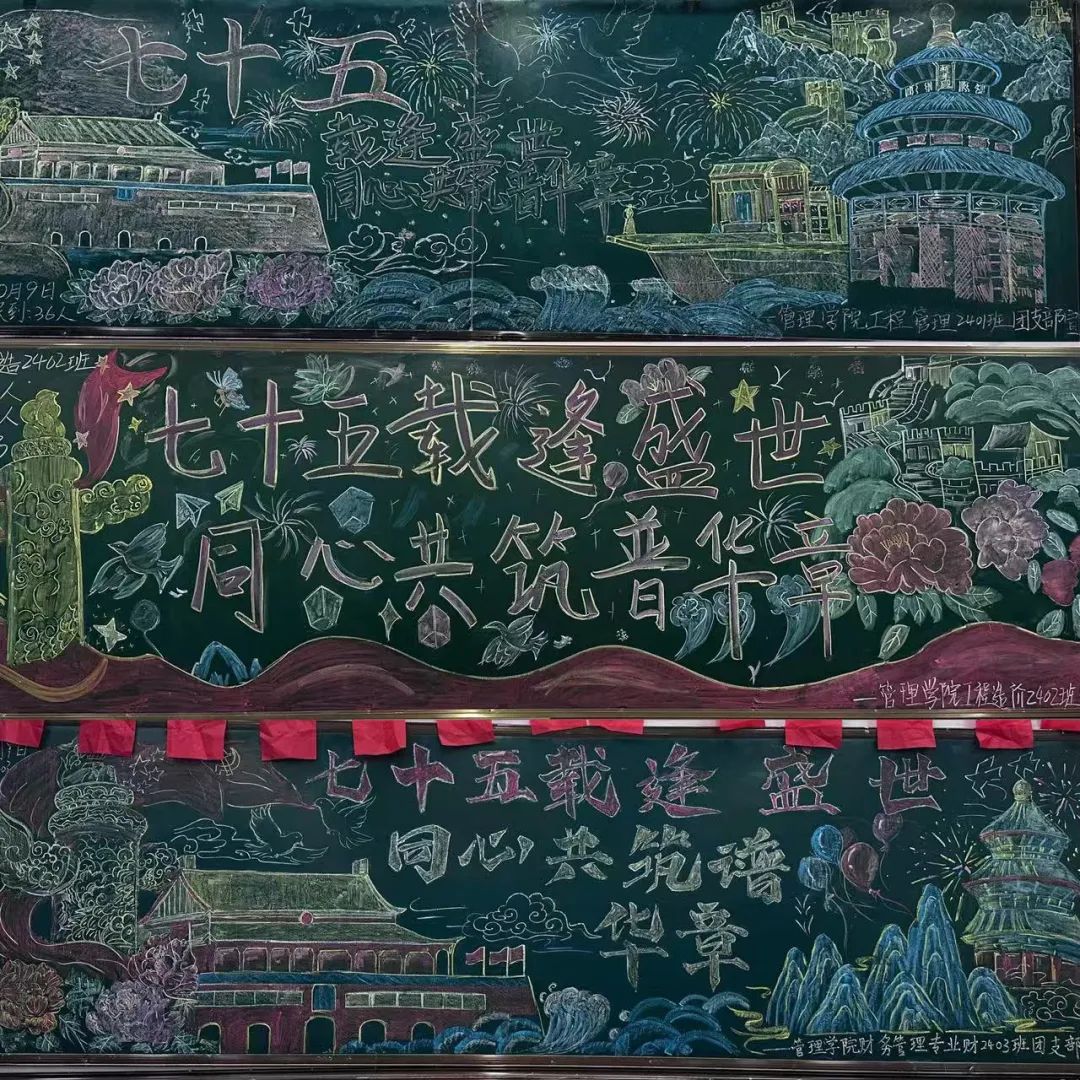 七十五
载逢盛世
同心共筑普华章
0月9日
到:36人
管理学院工程管理2401班团支部宣
2402班
人
人
七十五载逢盛世
同心共筑普华章
—管理学院工程造价2402班
七十五载逢盛世
同心共筑谱
华章
—管理学院财务管理专业财2403班团支部